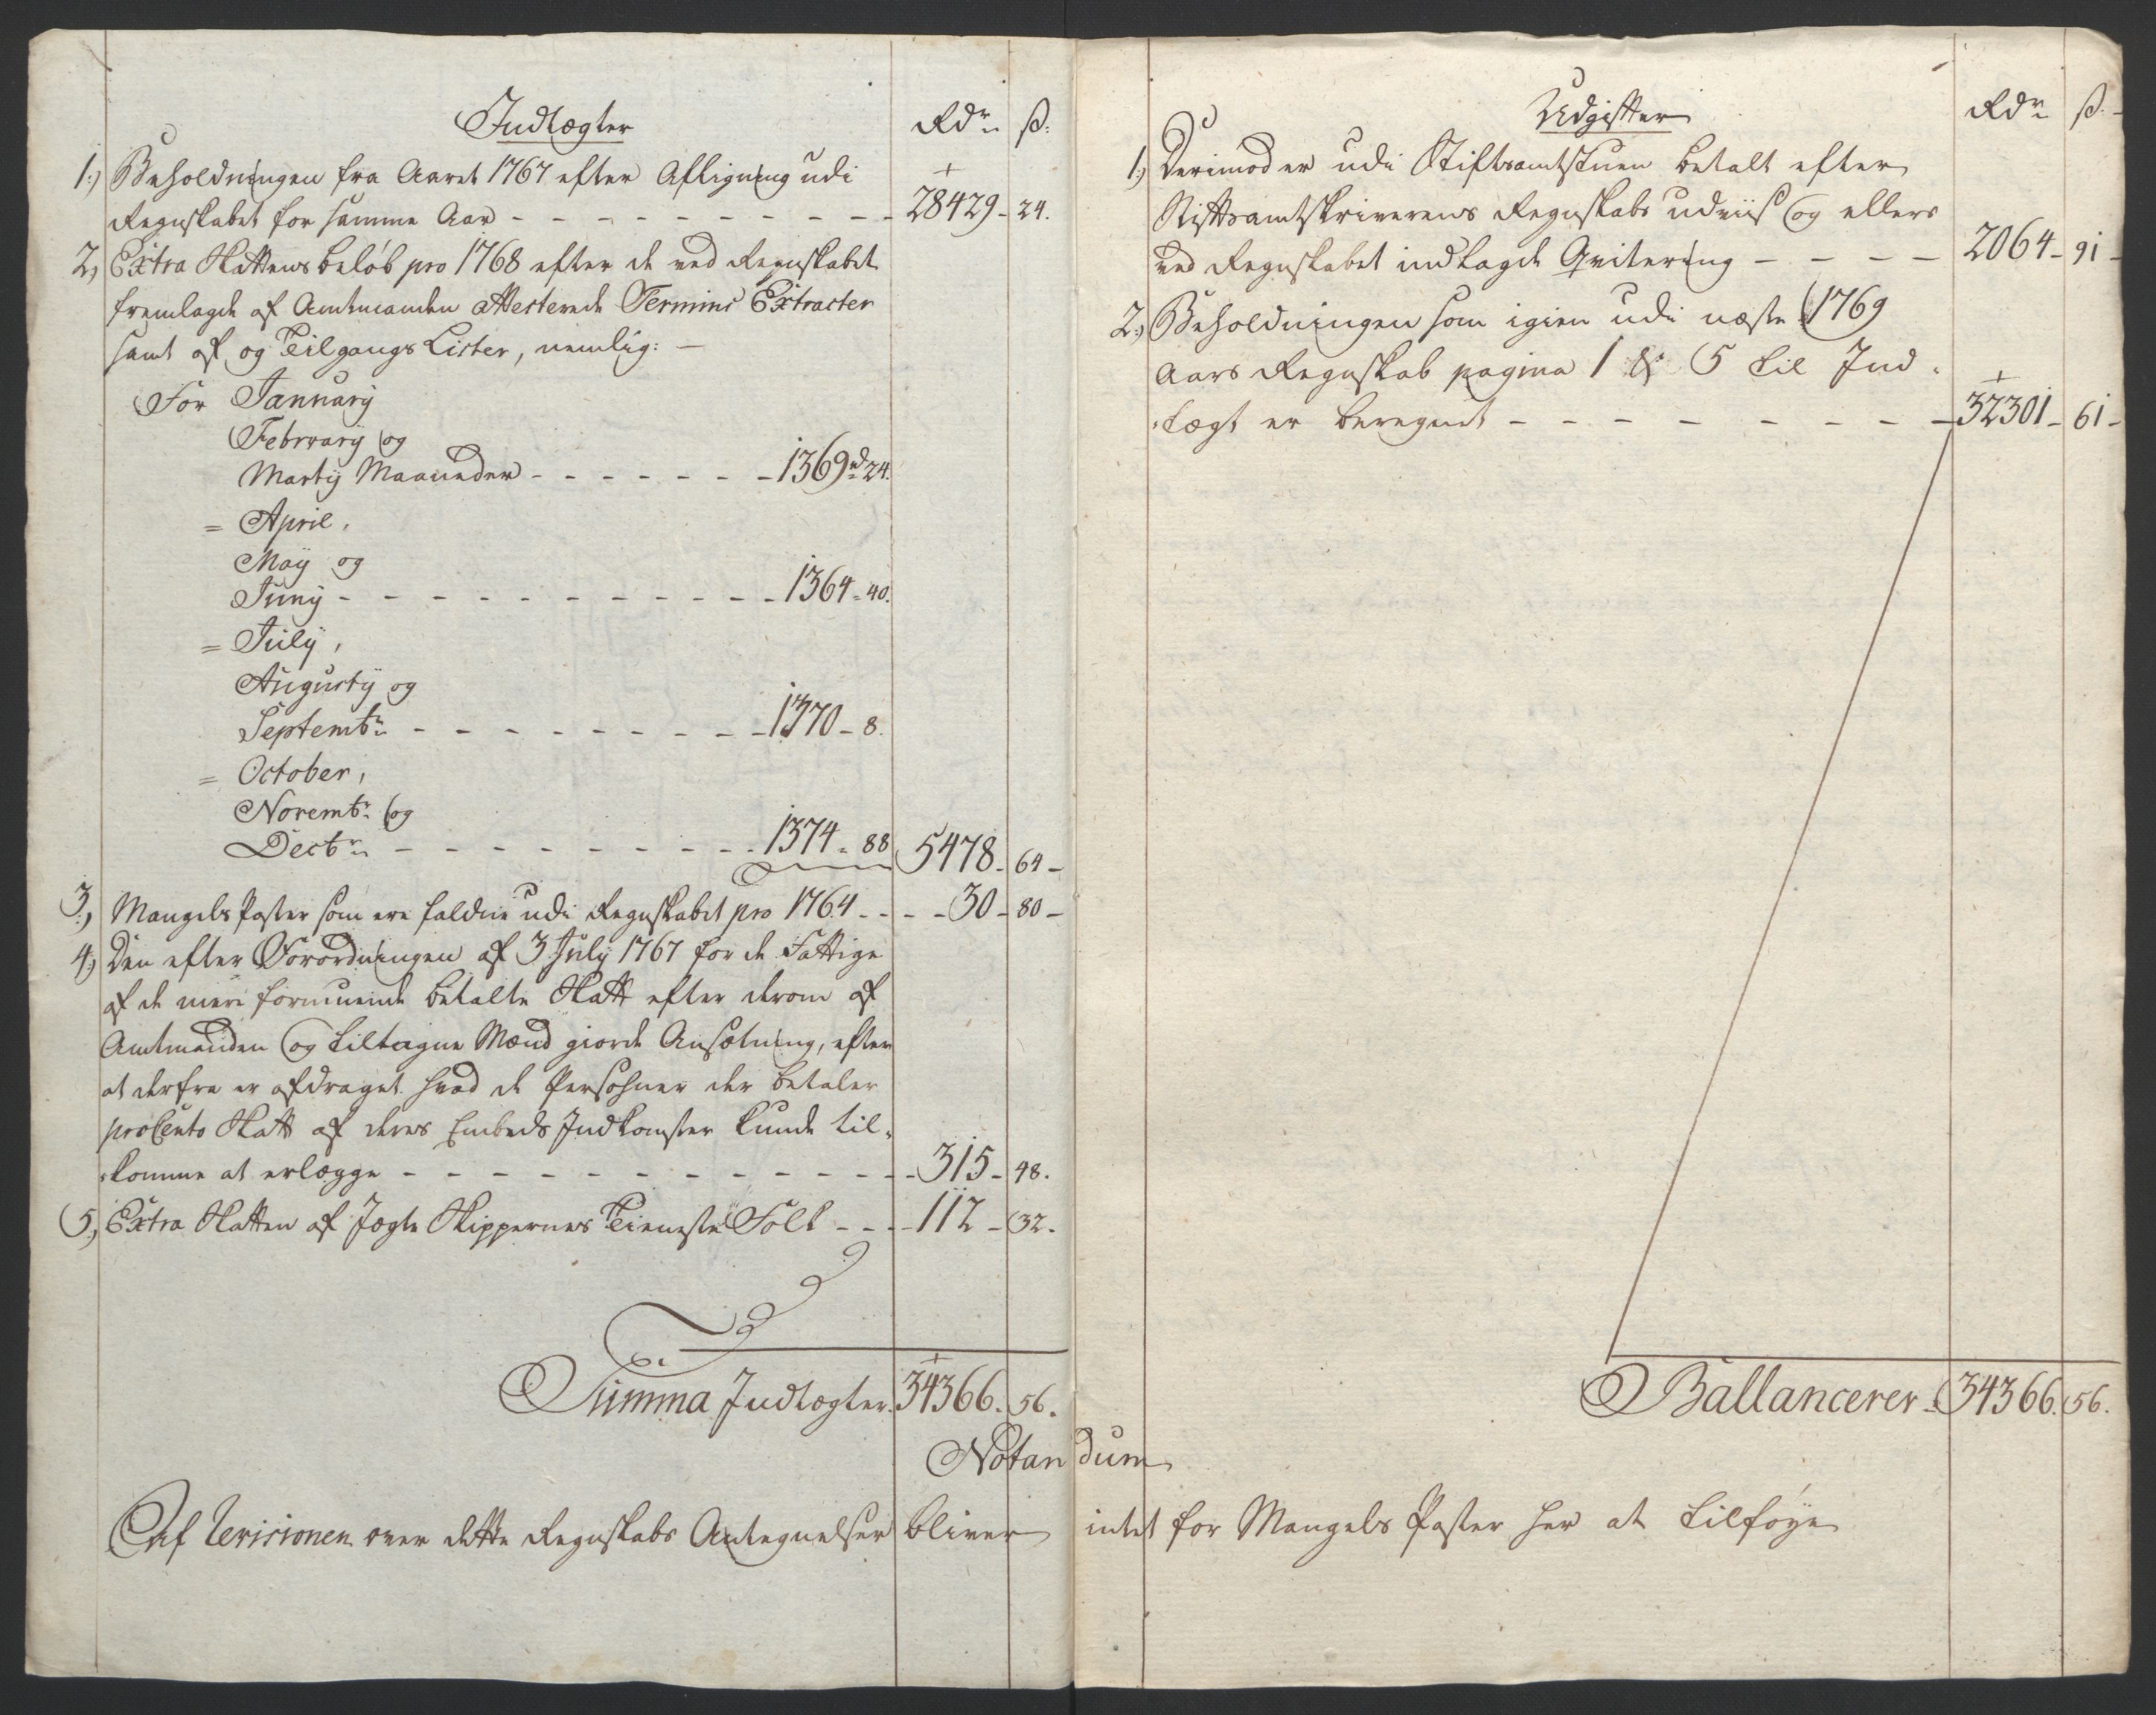 Indtægter Rdr. ß.
1.) Beholdningen fra Aaret 1767 efter Afligning udi
Regnskabet for samme Aar - - - - - - - - - 28429 - 24.
2.) Extra Skattens beløb pro 1768 efter de ved Regnskabet
fremlagde af Amtmanden attesterede Termins Extracter
samt af og Tilgangs Lister, nemlig: -
For January
February og
Marty Maaneder - - - - - - - 1369 rd 24.
= April,
May og
Juny - - - - - - - - - - 1364 - 40.
= July,
Augusty og
Septembr. - - - - - - - - 1370 - 8.
= October,
Novembr. og
Decbr. - - - - - - - - - 1374 - 88 5478 - 64 -
3.) Mangels Poster som ere faldne udi Regnskabet pro 1764 - - - - 30 - 80 -
4.) Den efter Forordningen af 3 July 1767 for de Fattige
af de meere formuende betalte Skatt efter derom af
Amtmanden og tiltagne Mænd giorde Ansætning, efter
at derfra er afdraget hvad de Persohner der betaler
procento Skatt af deres Embeds Indkomster kunde til-
-komme at erlægge - - - - - - - - - - - 315 - 48.
5.) Extra Skatten af Jægte Skippernes Tieneste Folk - - - 112 - 32.
Summa Indtægter. 34366. 56.
Udgifter Rdr. ß.
1.) Derimod er udi Stiftsamtstuen betalt efter
Stiftsamtskriverens Regnskabs udviis og ellers
ved Regnskabet indtagde Qvitering - - - - 2064 - 91 -
2.) Beholdningen som igien udi næste 1769
Aars Regnskab pagina 1 & 5 til Ind-
-tægt er beregnet - - - - - - - - 32301 - 61 -
Ballancerer - 34366. 56.
Notandum
Af Revisionen over dette Regnskabs Antegnelser bliver intet for Mangels Poster her at tilføye